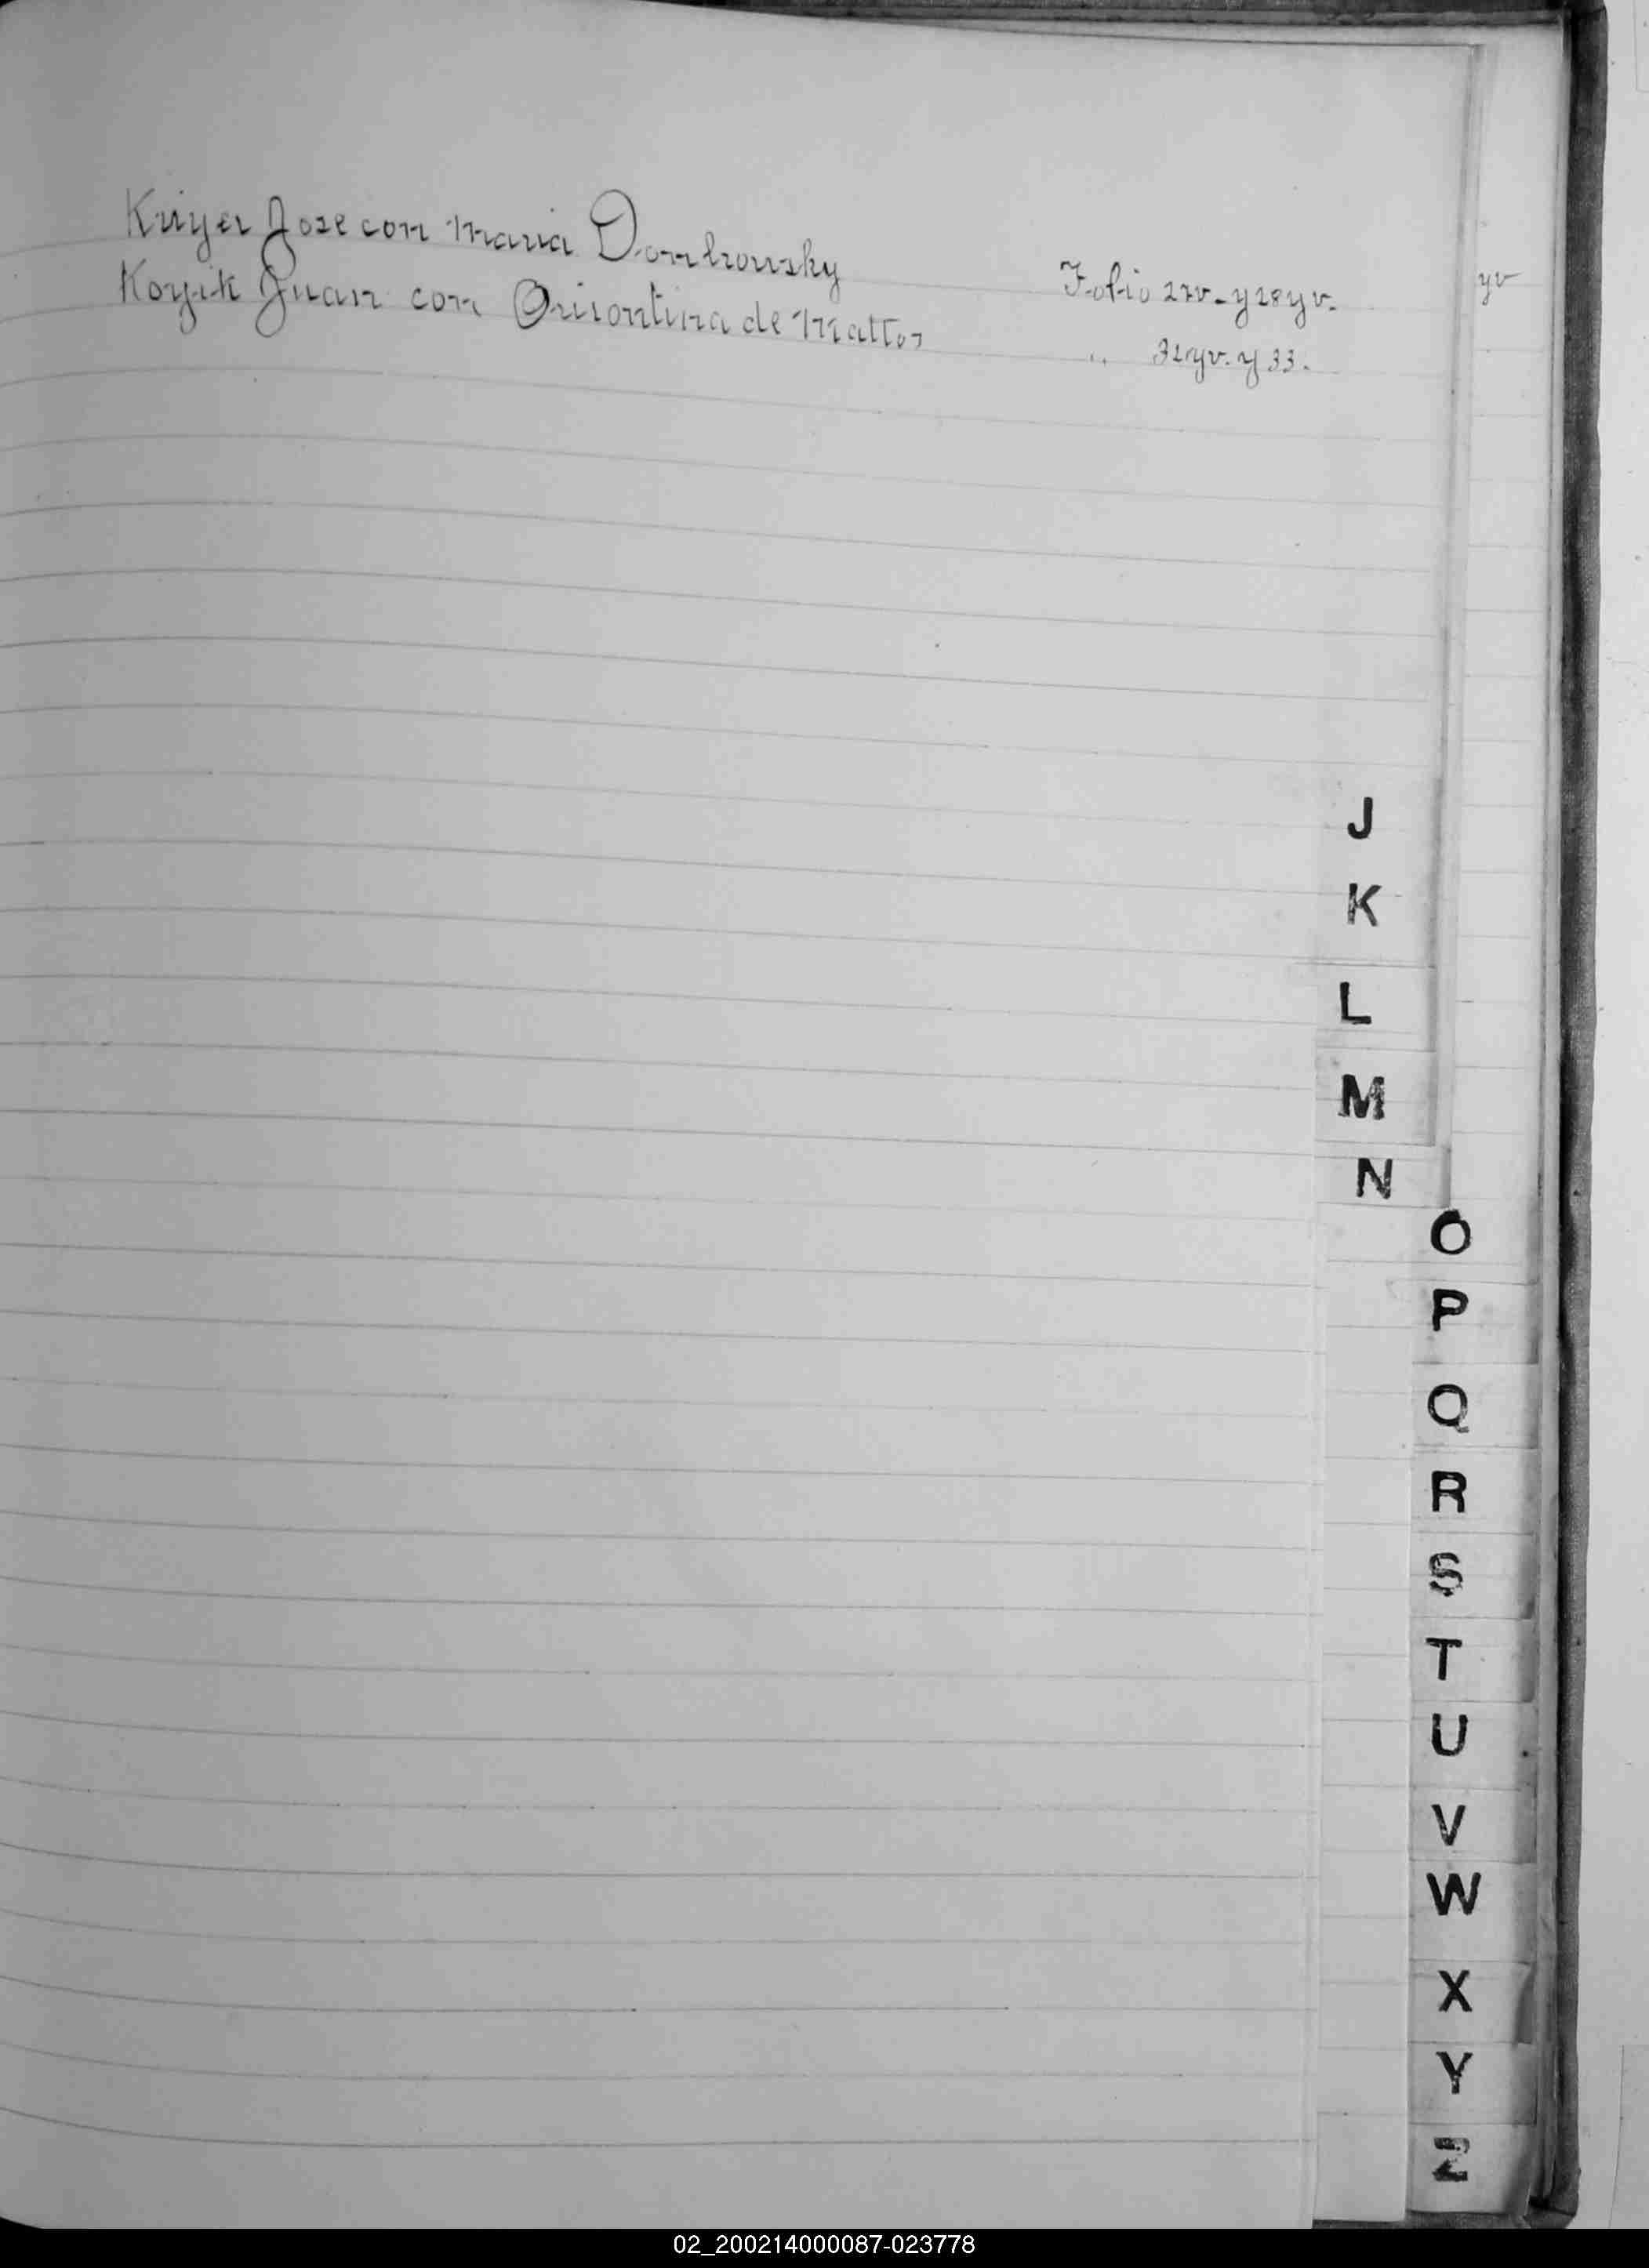 Kuyer Jose con Maria Dombrowsky Folio 27v-y 28 y v.
Koyik Juan con Orisontina de Mattos " 32 y v. y 33.
yv
J
K
L
M
N
O
P
Q
R
S
T
U
V
W
X
Y
Z
02_200214000087-023778